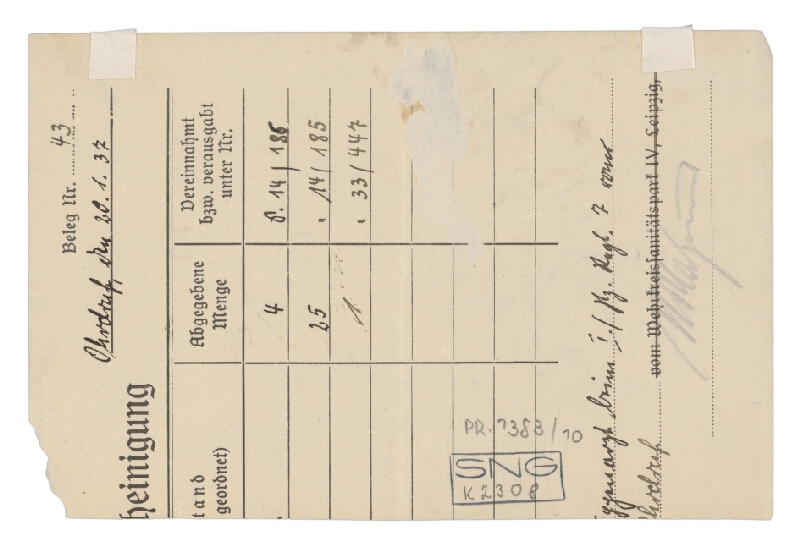 Beleg Nr. 43
Ohrdruf, den 20. 1. 37
heinigung
tand
geordnet)
Abgegebene
Menge
Vereinnahmt
bzw. verausgabt
unter Nr.
4 P. 14/186
25 " 14/185
1 " 33/447
beim I./Pz. Regt. 7 vom
Ohrdruf vom Wehrkreissanitätspark IV, Leipzig,
PR. 1383/10
SNG
K 2308